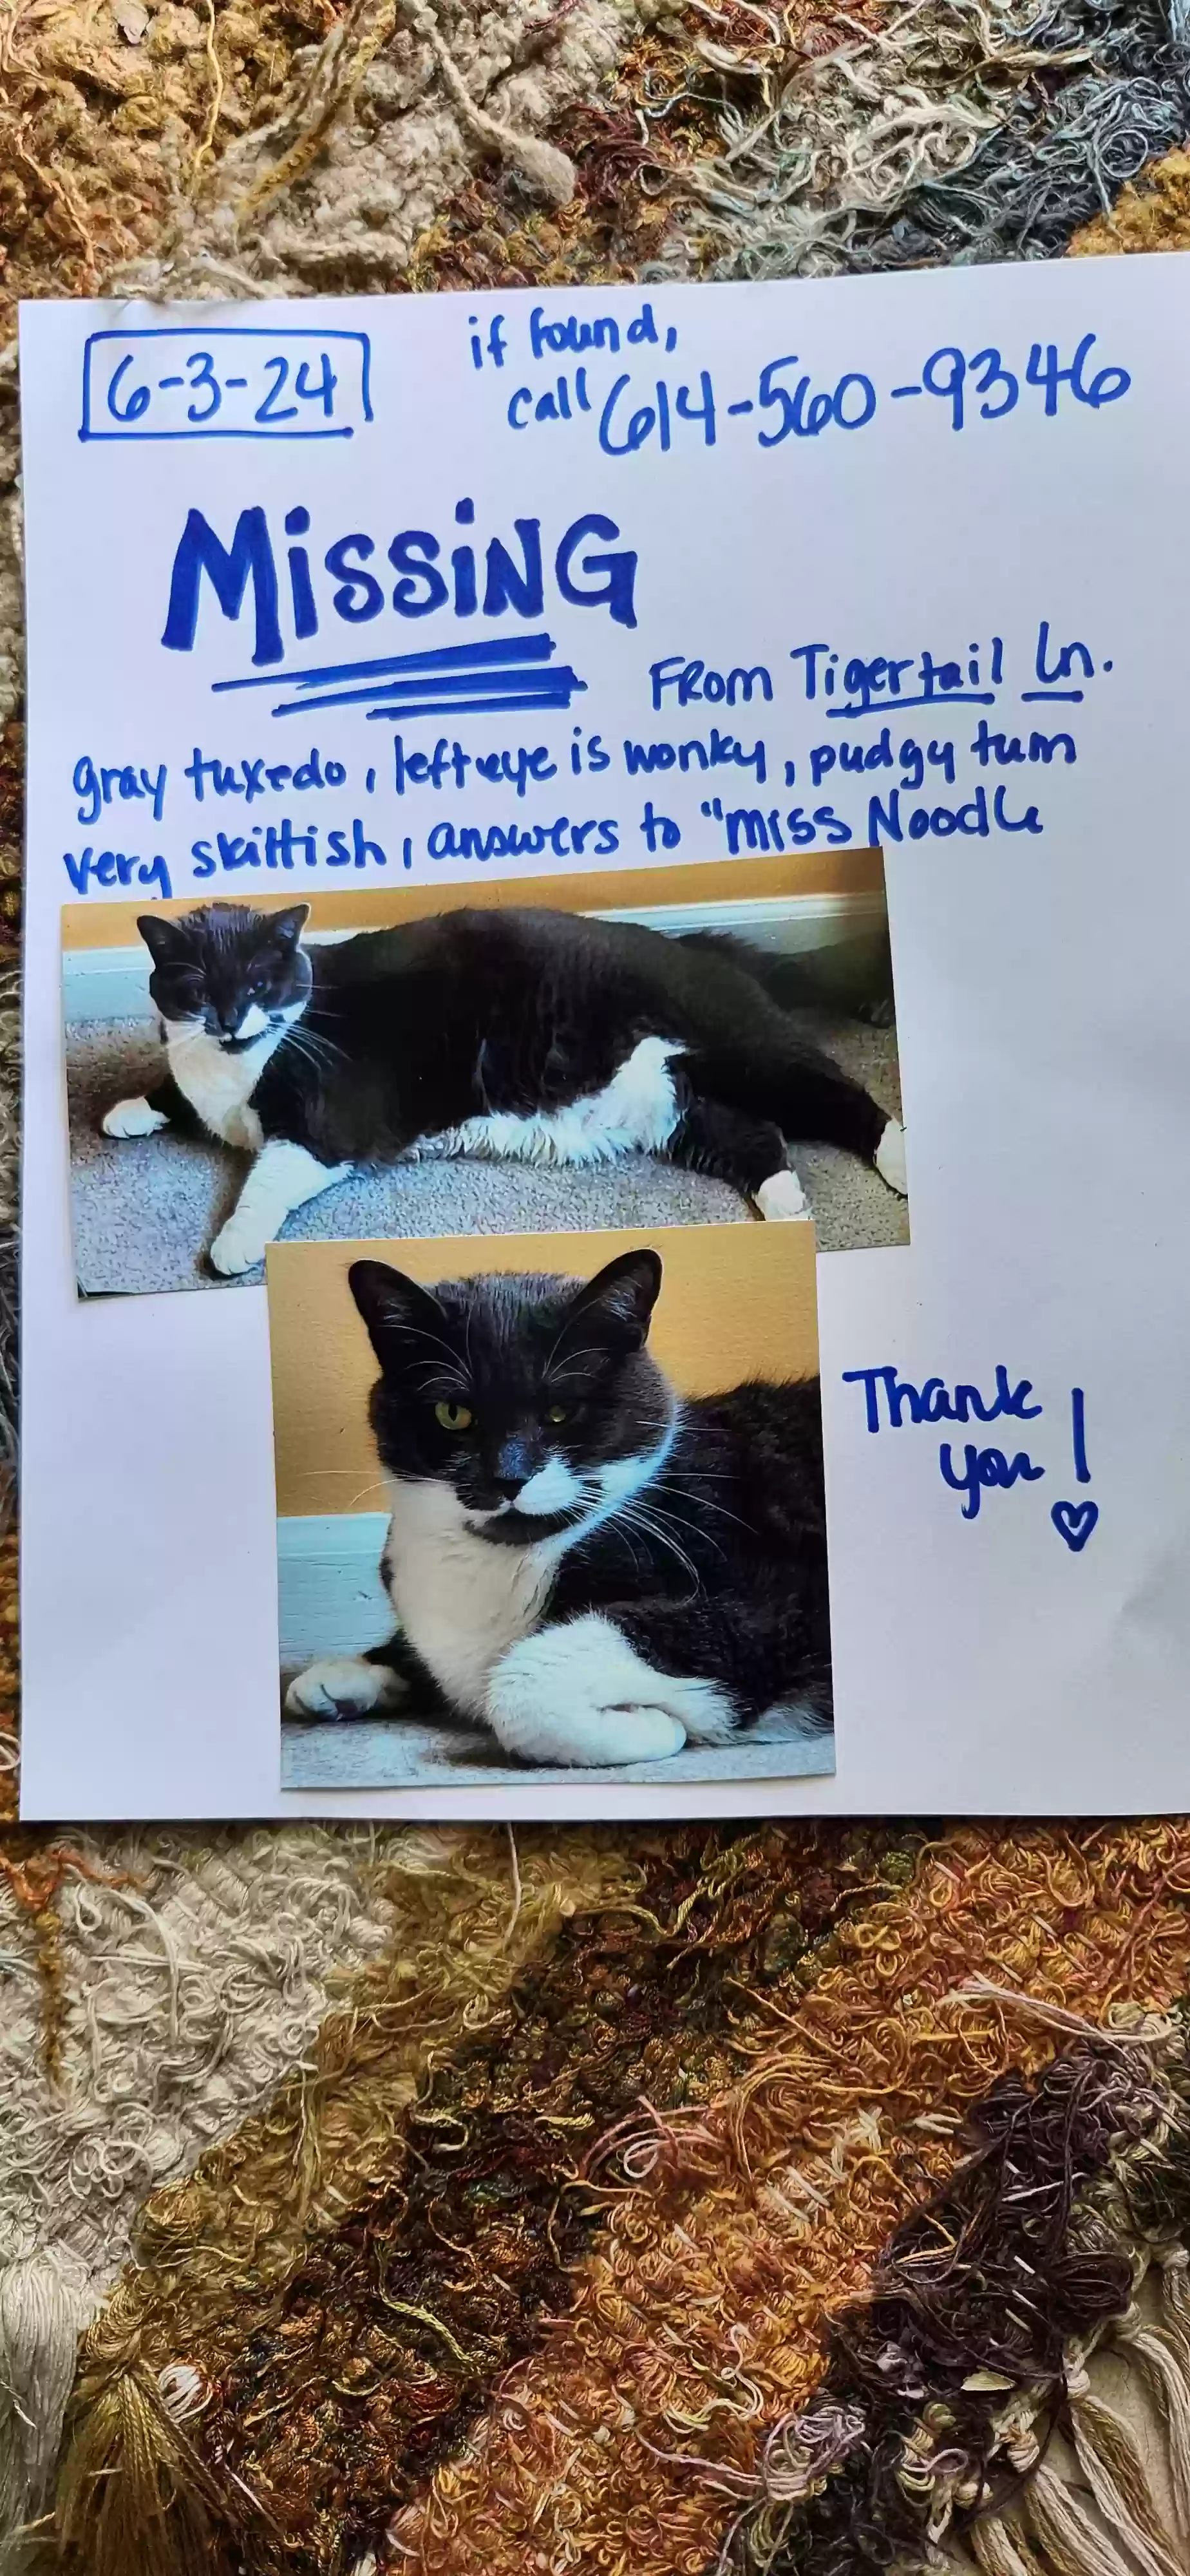 6-3-24
if found,
call 614-560-9346
MISSING
FROM Tigertail Ln.
gray tuxedo, left eye is wonky, pudgy tum
very skittish, answers to "miss Noodle
Thank
you!